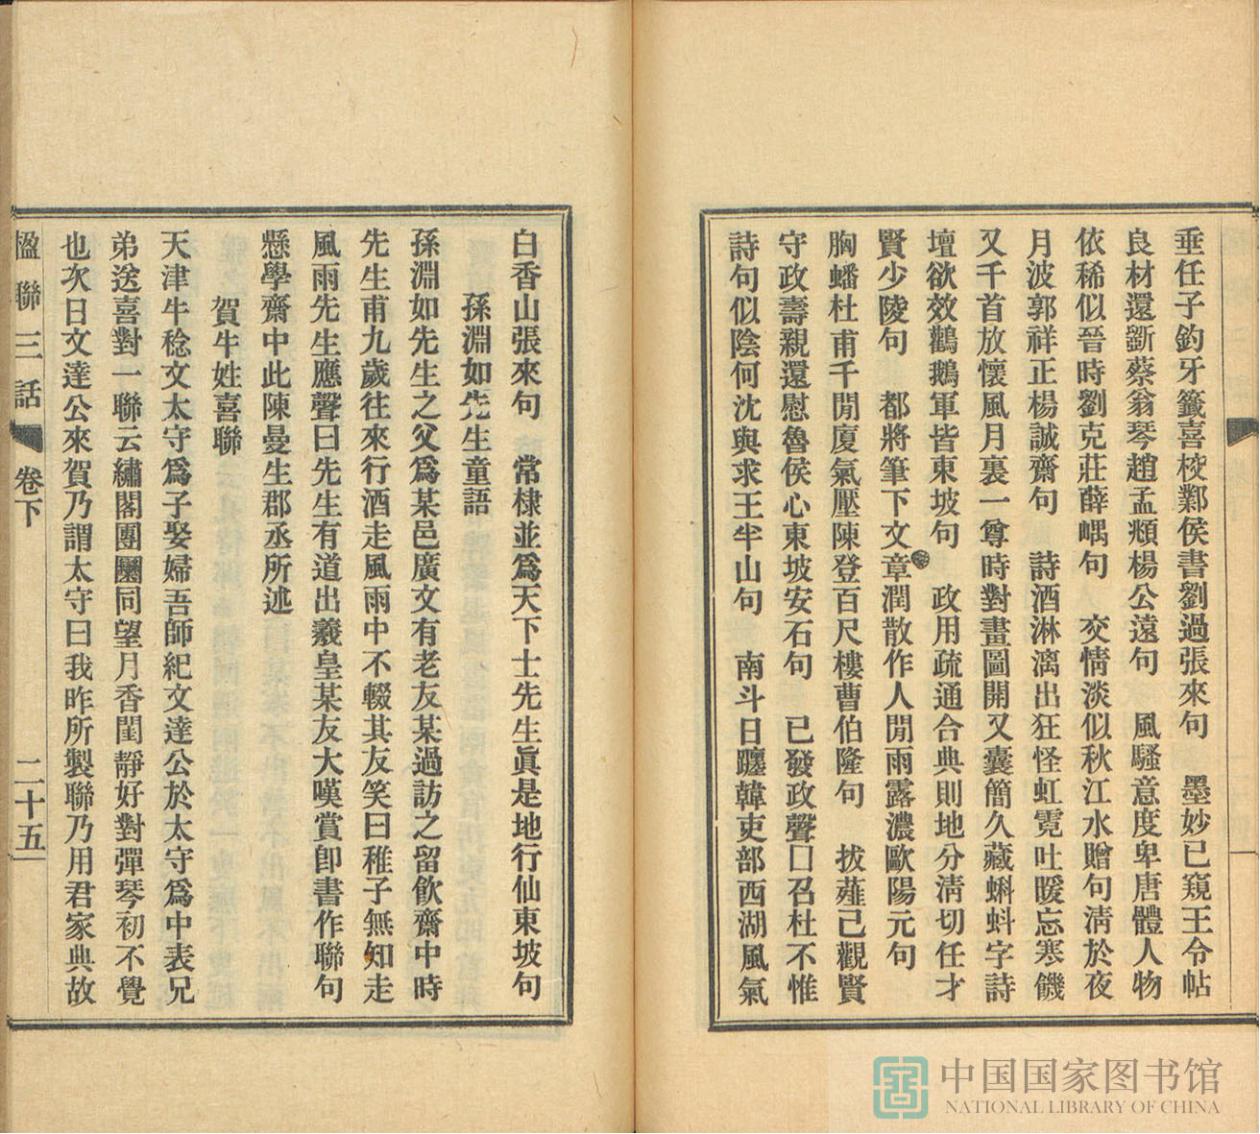 垂任子鈞牙籤喜校鄴侯書劉過張來句　墨妙已窺王令帖
良材還斵蔡翁琴趙孟頫楊公遠句　風騷意度卑唐體人物
依稀似晉時劉克莊薛嵎句　交情淡似秋江水贈句淸於夜
月波郭祥正楊誠齋句　詩酒淋漓出狂怪虹霓吐暖忘寒饑
又千首放懷風月裏一尊時對畫圖開又囊簡久藏蝌蚪字詩
壇欲效鸛鵝軍皆東坡句　政用疏通合典則地分淸切任才
賢少陵句　都將筆下文章潤散作人閒雨露濃歐陽元句
胸蟠杜甫千閒廈氣壓陳登百尺樓曹伯隆句　拔薤已觀賢
守政壽親還慰魯侯心東坡安石句　已發政聲囗召杜不惟
詩句似陰何沈與求王半山句　南斗日躔韓吏部西湖風氣
白香山張來句　常棣並爲天下士先生眞是地行仙東坡句
孫淵如先生童語
孫淵如先生之父爲某邑廣文有老友某過訪之留飮齋中時
先生甫九歲往來行酒走風雨中不輟其友笑曰稚子無知走
風雨先生應聲曰先生有道出羲皇某友大嘆賞卽書作聯句
懸學齋中此陳曼生郡丞所述
賀牛姓喜聯
天津牛稔文太守爲子娶婦吾師紀文達公於太守爲中表兄
弟送喜對一聯云繡閣團圞同望月香閨靜好對彈琴初不覺
也次日文達公來賀乃謂太守曰我昨所製聯乃用君家典故
楹聯三話　卷下　二十五
中国国家图书馆
NATIONAL LIBRARY OF CHINA